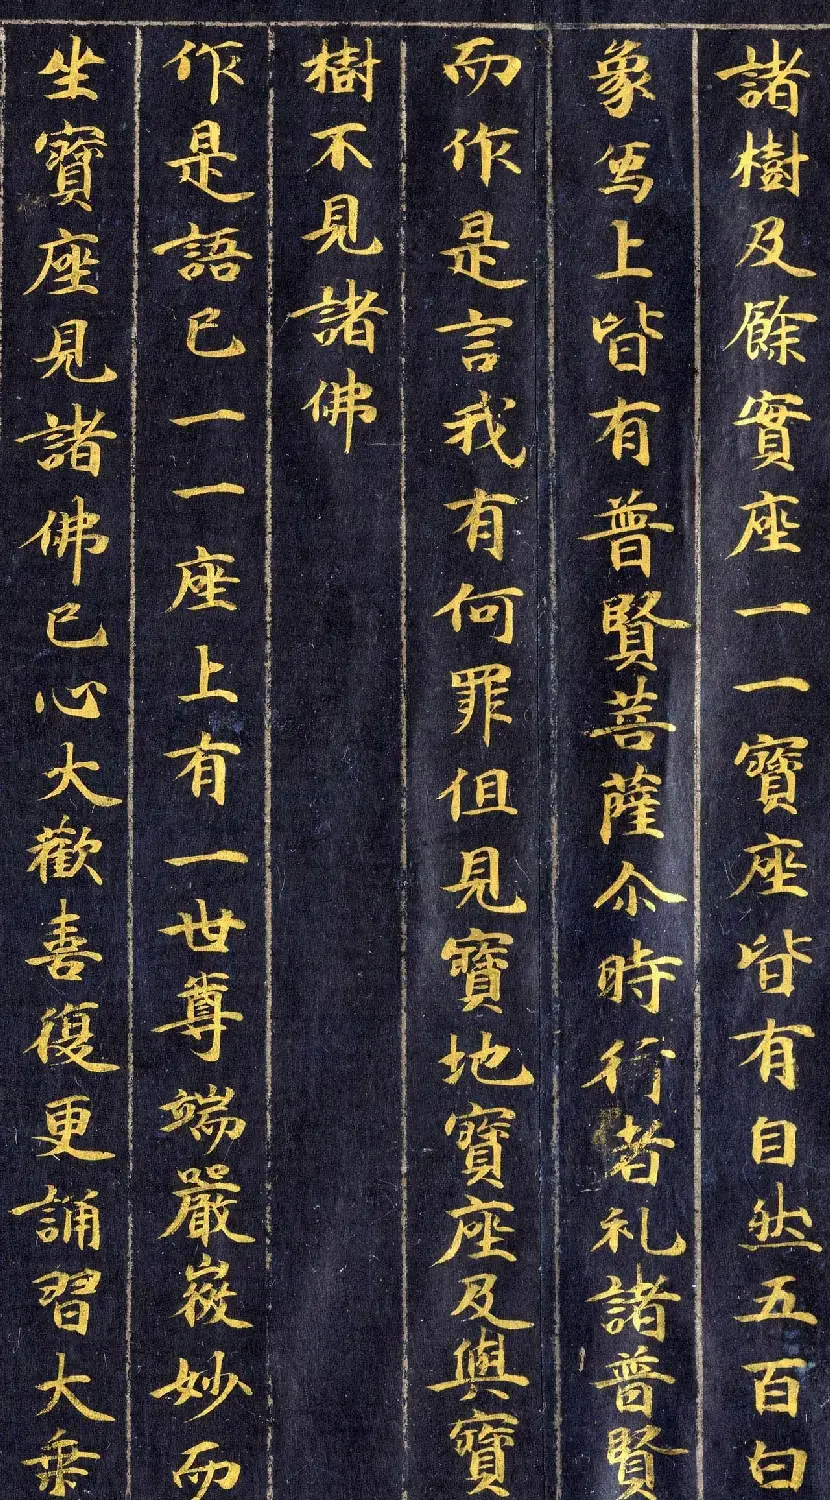 諸樹及餘實座一一寶座皆有自然五百白
象馬上皆有普賢菩薩尒時行者礼諸普賢
而作是言我有何罪但見寶地寶座及與寶
樹不見諸佛
作是語已一一座上有一世尊端嚴㣲妙而
坐寶座見諸佛已心大歡喜復更誦習大乗